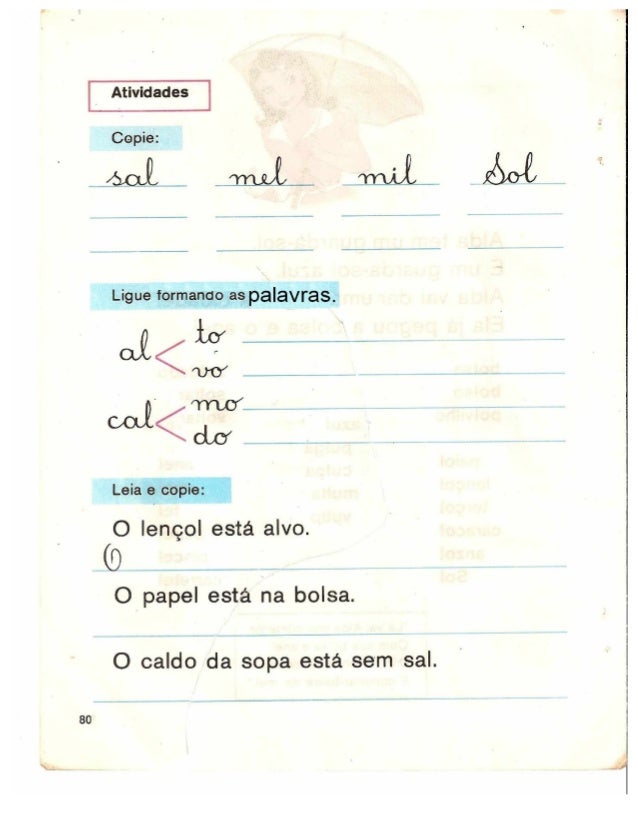 Atividades
Copie:
sal mel mil Sol
Ligue formando as palavras.
al to
vo
cal mo
do
Leia e copie:
O lençol está alvo.
O
O papel está na bolsa.
O caldo da sopa está sem sal.
80